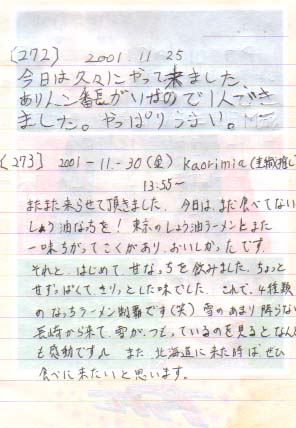 [272] 2001.11.25
今日は久々にやって来ました。
ありんこ番長がいないので1人でき
ました。やっぱりうまい。
[273] 2001-11-30(金) Kaorimia
13:55~
またまた来らせて頂きました。今日は、まだ食べてない
しょう油なっちを!東京のしょう油ラーメンとまた
一味ちがってこくがあり、おいしかったです
それと、はじめて、甘なっちを飲みました。ちょっと
甘ずっぱくて、きりっとした味でした。これで、4種類
のなっちラーメン制覇です(笑) 雪のあまり降らない
長崎から来て、雪がつもっているのを見るとなんと
も感動です また、北海道に来た時は、ぜひ
食べに来たいと思います。